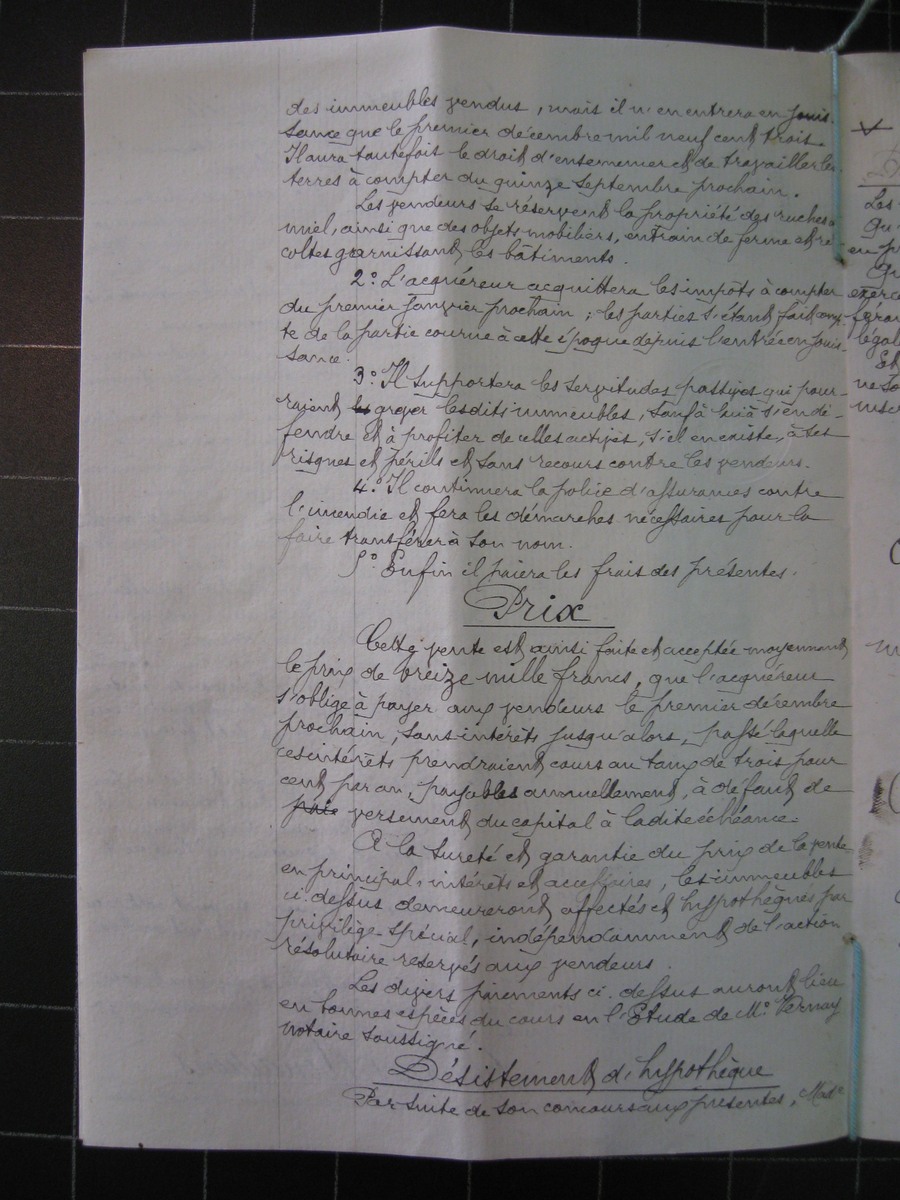 des immeubles vendus, mais il n'en entrera en jouis-
sance que le premier décembre mil neuf cent trois.
Il aura toutefois le droit d'ensemencer et de travailler les
terres à compter du quinze septembre prochain.
Les vendeurs se réservent la propriété des ruches à
miel, ainsi que des objets mobiliers, entrain de ferme et ré-
coltes garnissant les bâtiments.
2° L'acquéreur acquittera les impôts à compter
du premier janvier prochain ; les parties s'étant fait comp-
te de la partie courue à cette époque depuis l'entrée en jouis-
sance.
3° Il supportera les servitudes passives qui pour-
raient grever lesdits immeubles, sauf à lui à s'en dé-
fendre et à profiter de celles actives, s'il en existe, à ses
risques et périls et sans recours contre les vendeurs.
4° Il continuera la police d'assurances contre
l'incendie et fera les démarches nécessaires pour la
faire transférer à son nom.
5° Enfin il paiera les frais des présentes.
Prix
Cette vente est ainsi faite et acceptée moyennant
le prix de treize mille francs, que l'acquéreur
s'oblige à payer aux vendeurs le premier décembre
prochain, sans intérêts jusqu'alors, passé laquelle
ces intérêts prendraient cours au taux de trois pour
cent par an, payables annuellement, à défaut de
paie versement du capital à ladite échéance.
A la sureté et garantie du prix de la vente
en principal, intérêts et accessoires, les immeubles
ci-dessus demeureront affectés et hypothèqués par
privilège spécial, indépendamment de l'action
résolutoire reservés aux vendeurs.
Les divers paiements ci-dessus auront lieu
en bonnes espèces du cours en l'Etude de Me Vernay
notaire soussigné.
Désistement d'hypothèque
Par suite de son concours aux présentes, Made